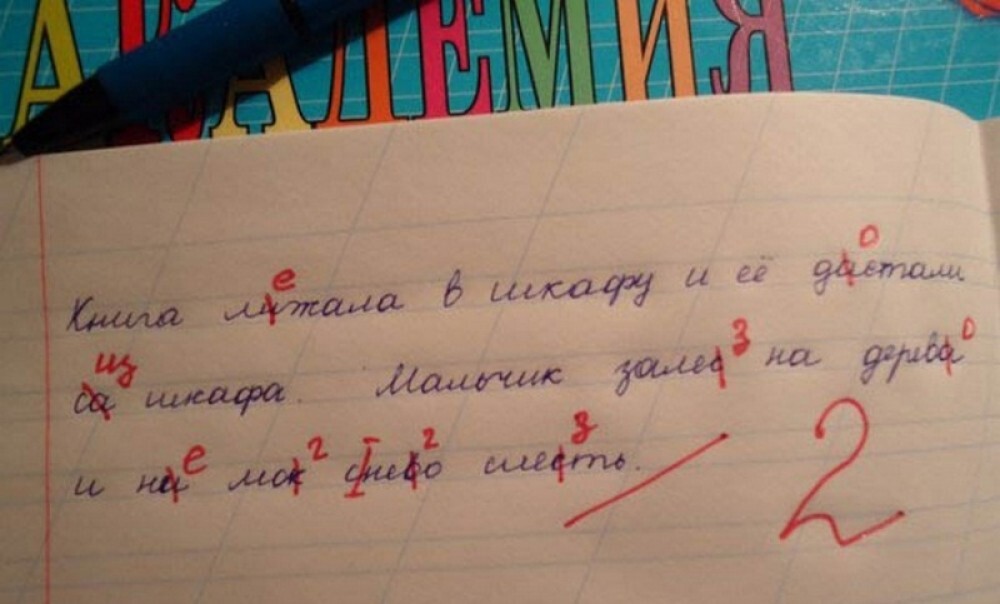 АКАДЕМИЯ
е о
Книга лижала в шкафу и её дастали
из з о
са шкафа. Мальчик залес на дерева
е г г з
и ни мок снево слесть.
2